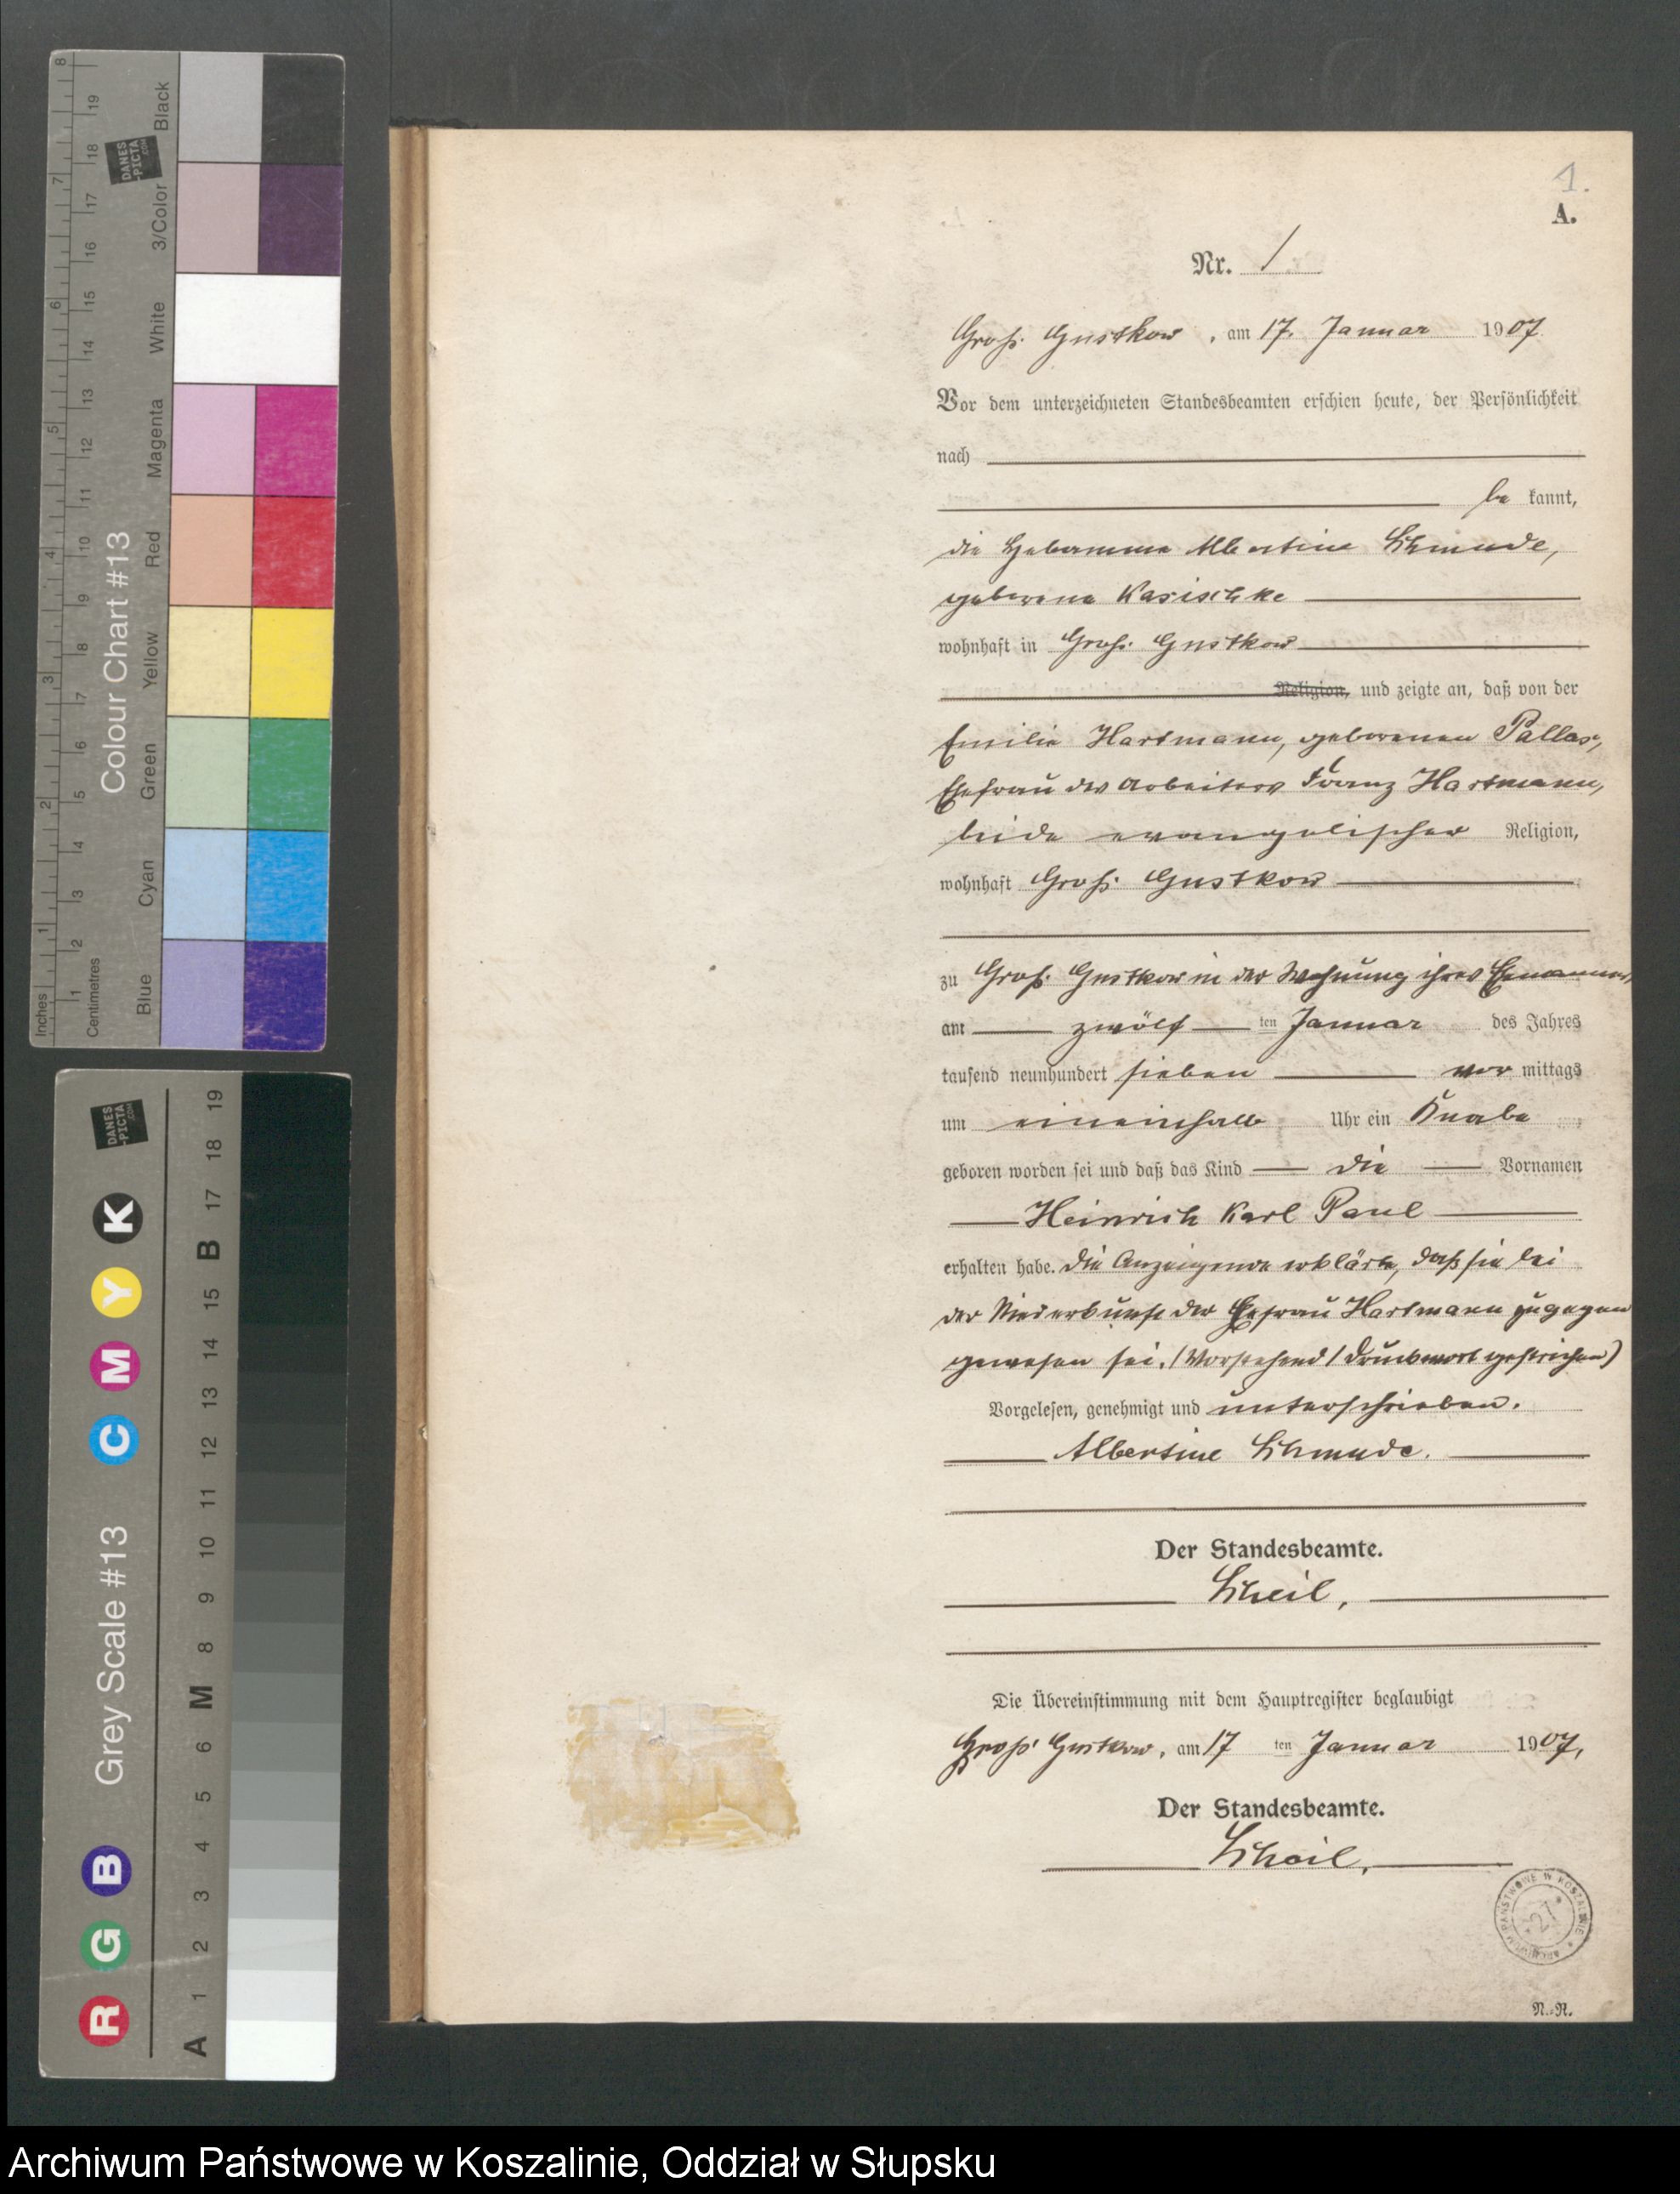 1.
A.
Nr. 1
Groß Gustkow, am 17. Januar 1907
Vor dem unterzeichneten Standesbeamten erschien heute, der Persönlichkeit
nach
be kannt,
die Hebamme Albertine Schmude,
geborene Kasischke
wohnhaft in Groß Gustkow
Religion, und zeigte an, daß von der
Emilie Hartmann, geborenen Pallas,
Ehefrau des Arbeiters Franz Hartmann,
beide evangelischer Religion,
wohnhaft Groß Gustkow
zu Groß Gustkow in der Wohnung ihres Ehemannes,
am zwölf ten Januar des Jahres
tausend neunhundert sieben vor mittags
um eineinhalb Uhr ein Knabe
geboren worden sei und daß das Kind die Vornamen
Heinrich Karl Paul
erhalten habe. Die Anzeigende erklärte, daß sie bei
der Niederkunft der Ehefrau Hartmann zugegen
gewesen sei. (Vorstehend 1 Druckwort gestrichen)
Vorgelesen, genehmigt und unterschrieben.
Albertine Schmude.
Der Standesbeamte.
Scheil,
Die Übereinstimmung mit dem Hauptregister beglaubigt
Groß Gustkow, am 17 ten Januar 1907,
Der Standesbeamte.
Scheil,
ARCHIWUM PAŃSTWOWE W KOSZALINIE
27
N. N.
Inches 1 2 3 4 5 6 7 8
Centimetres 1 2 3 4 5 6 7 8 9 10 11 12 13 14 15 16 17 18 19
Colour Chart #13
Blue Cyan Green Yellow Red Magenta White 3/Color Black
DANES-PICTA.COM
Grey Scale #13
R G B C M Y K
A 1 2 3 4 5 6 M 8 9 10 11 12 13 14 15 B 17 18 19
DANES-PICTA.COM
Archiwum Państwowe w Koszalinie, Oddział w Słupsku